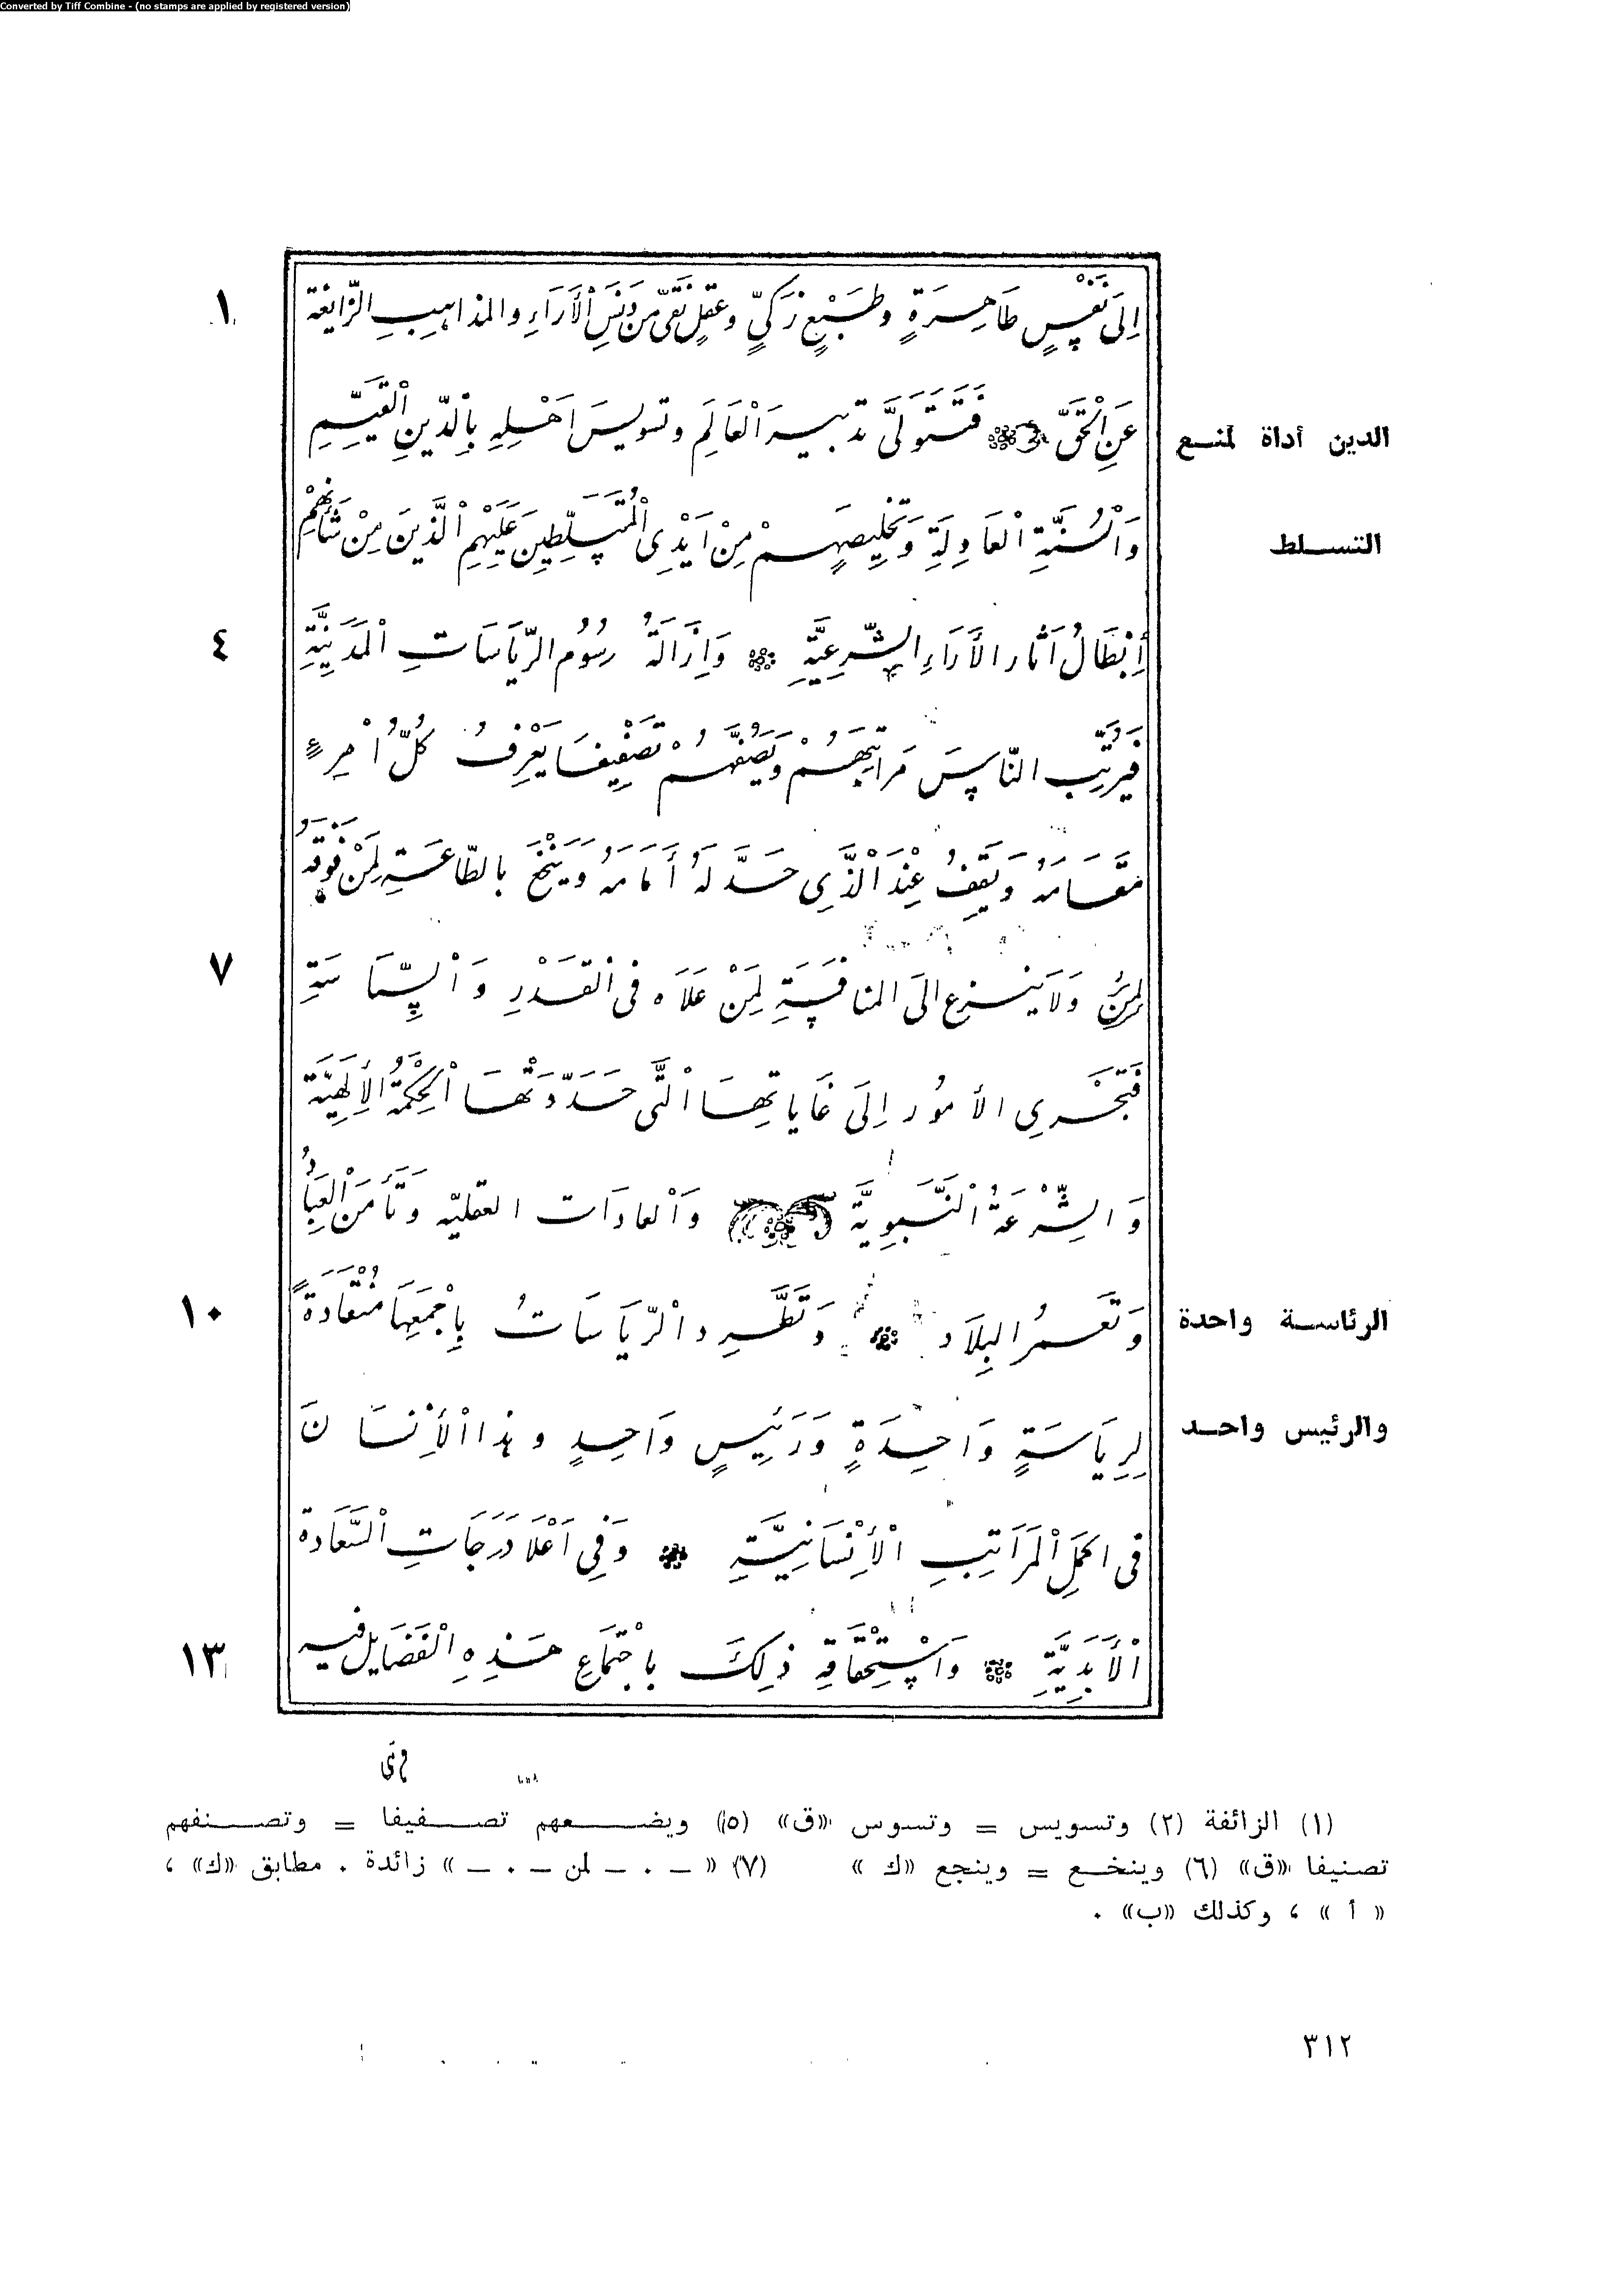 Converted by Tiff Combine - (no stamps are applied by registered version)
١ إِلَى نَفْسٍ طَاهِرَةٍ وطَبْعٍ زَكِيٍّ وعقلٍ نَقيٍّ مِن دَنَسِ الْأَرَاءِ والمذاهِبِ الزّايغة
عَنِ الْحَقِّ فَتَتَوَلَّى تدبير الْعَالَمِ وتسويسَ اَهْلِهِ بِالدّينِ الْقَيِّمِ
الدين أداة لمنع
وَالْسُنَّةِ الْعَادِلَةِ وَتَخليصهم مِنْ اَيْدِى الْمُتَسَلِّطِينَ عَلَيْهِمِ الَّذينَ مِنْ شَأْنِهِمْ
التسلط
٤ أِبْطَالُ آثار الأَرَاءِ الشَّرعيَّةِ وَاِزَالَةُ رسُوُم الرّيَاسَاتِ الْمَدَنِيَّةِ
فيُرتِّب النّاسَ مَراتِبَهُمْ وَيَصُفَّهُمْ تَصْفِيِفَا يَعْرِفُ كُلُّ اُمْرِءٍ
مقَامَهُ وَيَقِفُ عِنْدَ الْذَّي حَدَّ لَهُ أَمَامَهُ وَيَنْخَعَ بالطّاعَةِ لِمَنْ فَوْقَهُ
٧ لِمَنْ وَلاَ ينزع الىَ المنافَسَةِ لِمَنْ عَلاَه فى القَدْرِ وَالْسِّيَاسَةِ
فَتَجْرِي الأمُور اِلَى غَاياتهَا الْتَّى حَدَّدَتْهَا الْحِكْمَةُ الإلَهِيَّة
وَالشِّرْعَةُ الْنَّبَوِيَّة وَالعادَات العقليّه وتَأْمَن الْعِبَادُ
١٠ وَتَعمرُ البِلاَد وَتَطَّرِد الْرّيَاسَاتُ بِاجْمَعِهَا مُنْقَادَةً
الرئاسة واحدة
لِرِيَاسَةٍ وَاحِدَةٍ وَرَئِيسٍ وَاحِدٍ وهذا الْأِنْسَانَ
والرئيس واحد
فى اكمَلِ الْمَرَاتِبِ الْأِنْسَانِيَّةِ وَفِي اَعْلاَ دَرَجَاتِ السَّعَادة
١٣ الْأَبَدِيَّةِ وَاسْتِحْقَاقِه ذلِكَ باجْتمَاعِ هَذِهِ الْفَضَايل فيه
(١) الزائفة (٢) وتسويس = وتسوس «ق» (٥) ويضعهم تصفيفا = وتصنفهم
تصنيفا «ق» (٦) وينخع = وينجع «ك» (٧) « – . – لمن – . – » زائدة . مطابق «ك» ،
« أ » ، وكذلك «ب» .
٣١٢